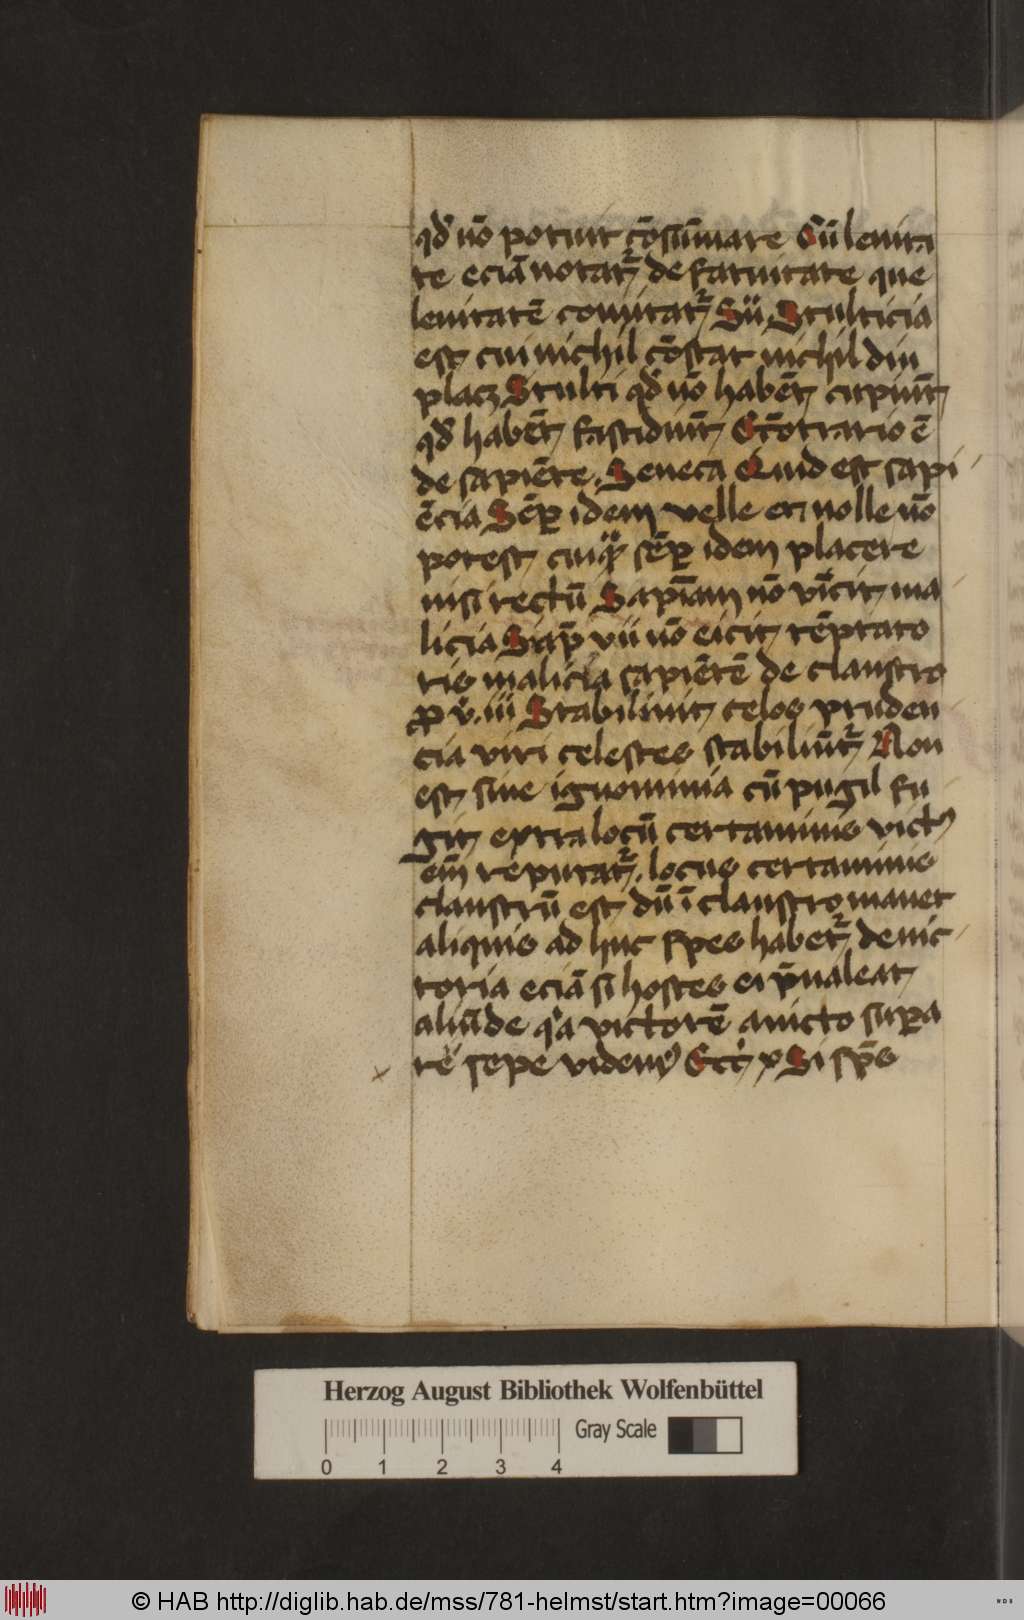 qd̕ nō potuit cōsūmare Cū leuita
te eciā notat᷑ de fatuitate que
leuitatē comitat᷑ Sꝫ Stulticia
est cui nichil cōstat nichil diu
placꝫ Stulti qd̕ nō habēt cupiūt
qd̕ habēt fastidiūt Ecōtrario ē
de sapiēte. Seneca Quid est sapi
ēcia Sēꝑ idem velle et nolle nō
potest cuiqꝫ sēꝑ idem placere
nisi rectū Sapīam nō vīcit ma
licia Sap̄ vii nō eicit tēptato
ris malicia sapiētē de claustro
ꝓv̄. iii Stabiliuit celos pruden
cia viri celestes stabiliūt᷑ Non
est sine ignominia cū pugil fu
git extra locū certaminis vict᷒
em̄ reputat᷑. locus certaminis
claustrū est dū ī claustro manet
aliquis ad huc spes habet᷑ de vic
toria eciā si hostes ei p̄ualeat
aliūde q͛a victorē a victo suꝑa
re sepe videm᷒ Ecc̄ x Si sp̄s
Herzog August Bibliothek Wolfenbüttel
Gray Scale
0 1 2 3 4
© HAB http://diglib.hab.de/mss/781-helmst/start.htm?image=00066